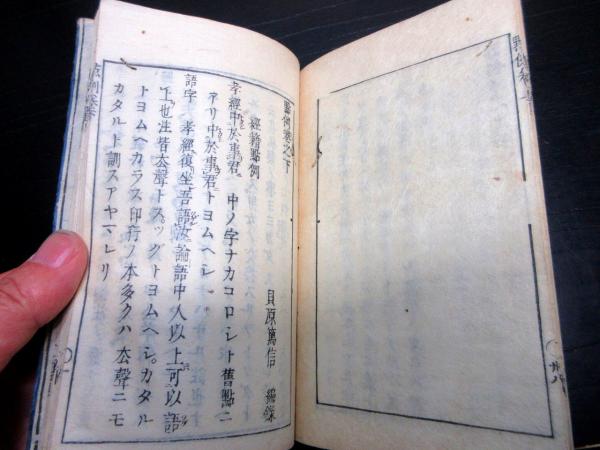 點例卷之下
貝原篤信 編錄
經籍點例
孝經中於事君 中ノ字ナカコロシト舊點ニ
アリ中於事君トヨムヘシ
語字 孝經復坐吾語汝論語中人以上可以語
上也注皆去聲トスツグトヨムヘシカタル
トヨムヘカラス印行ノ本多クハ去聲ニモ
カタルト訓スアヤマレリ